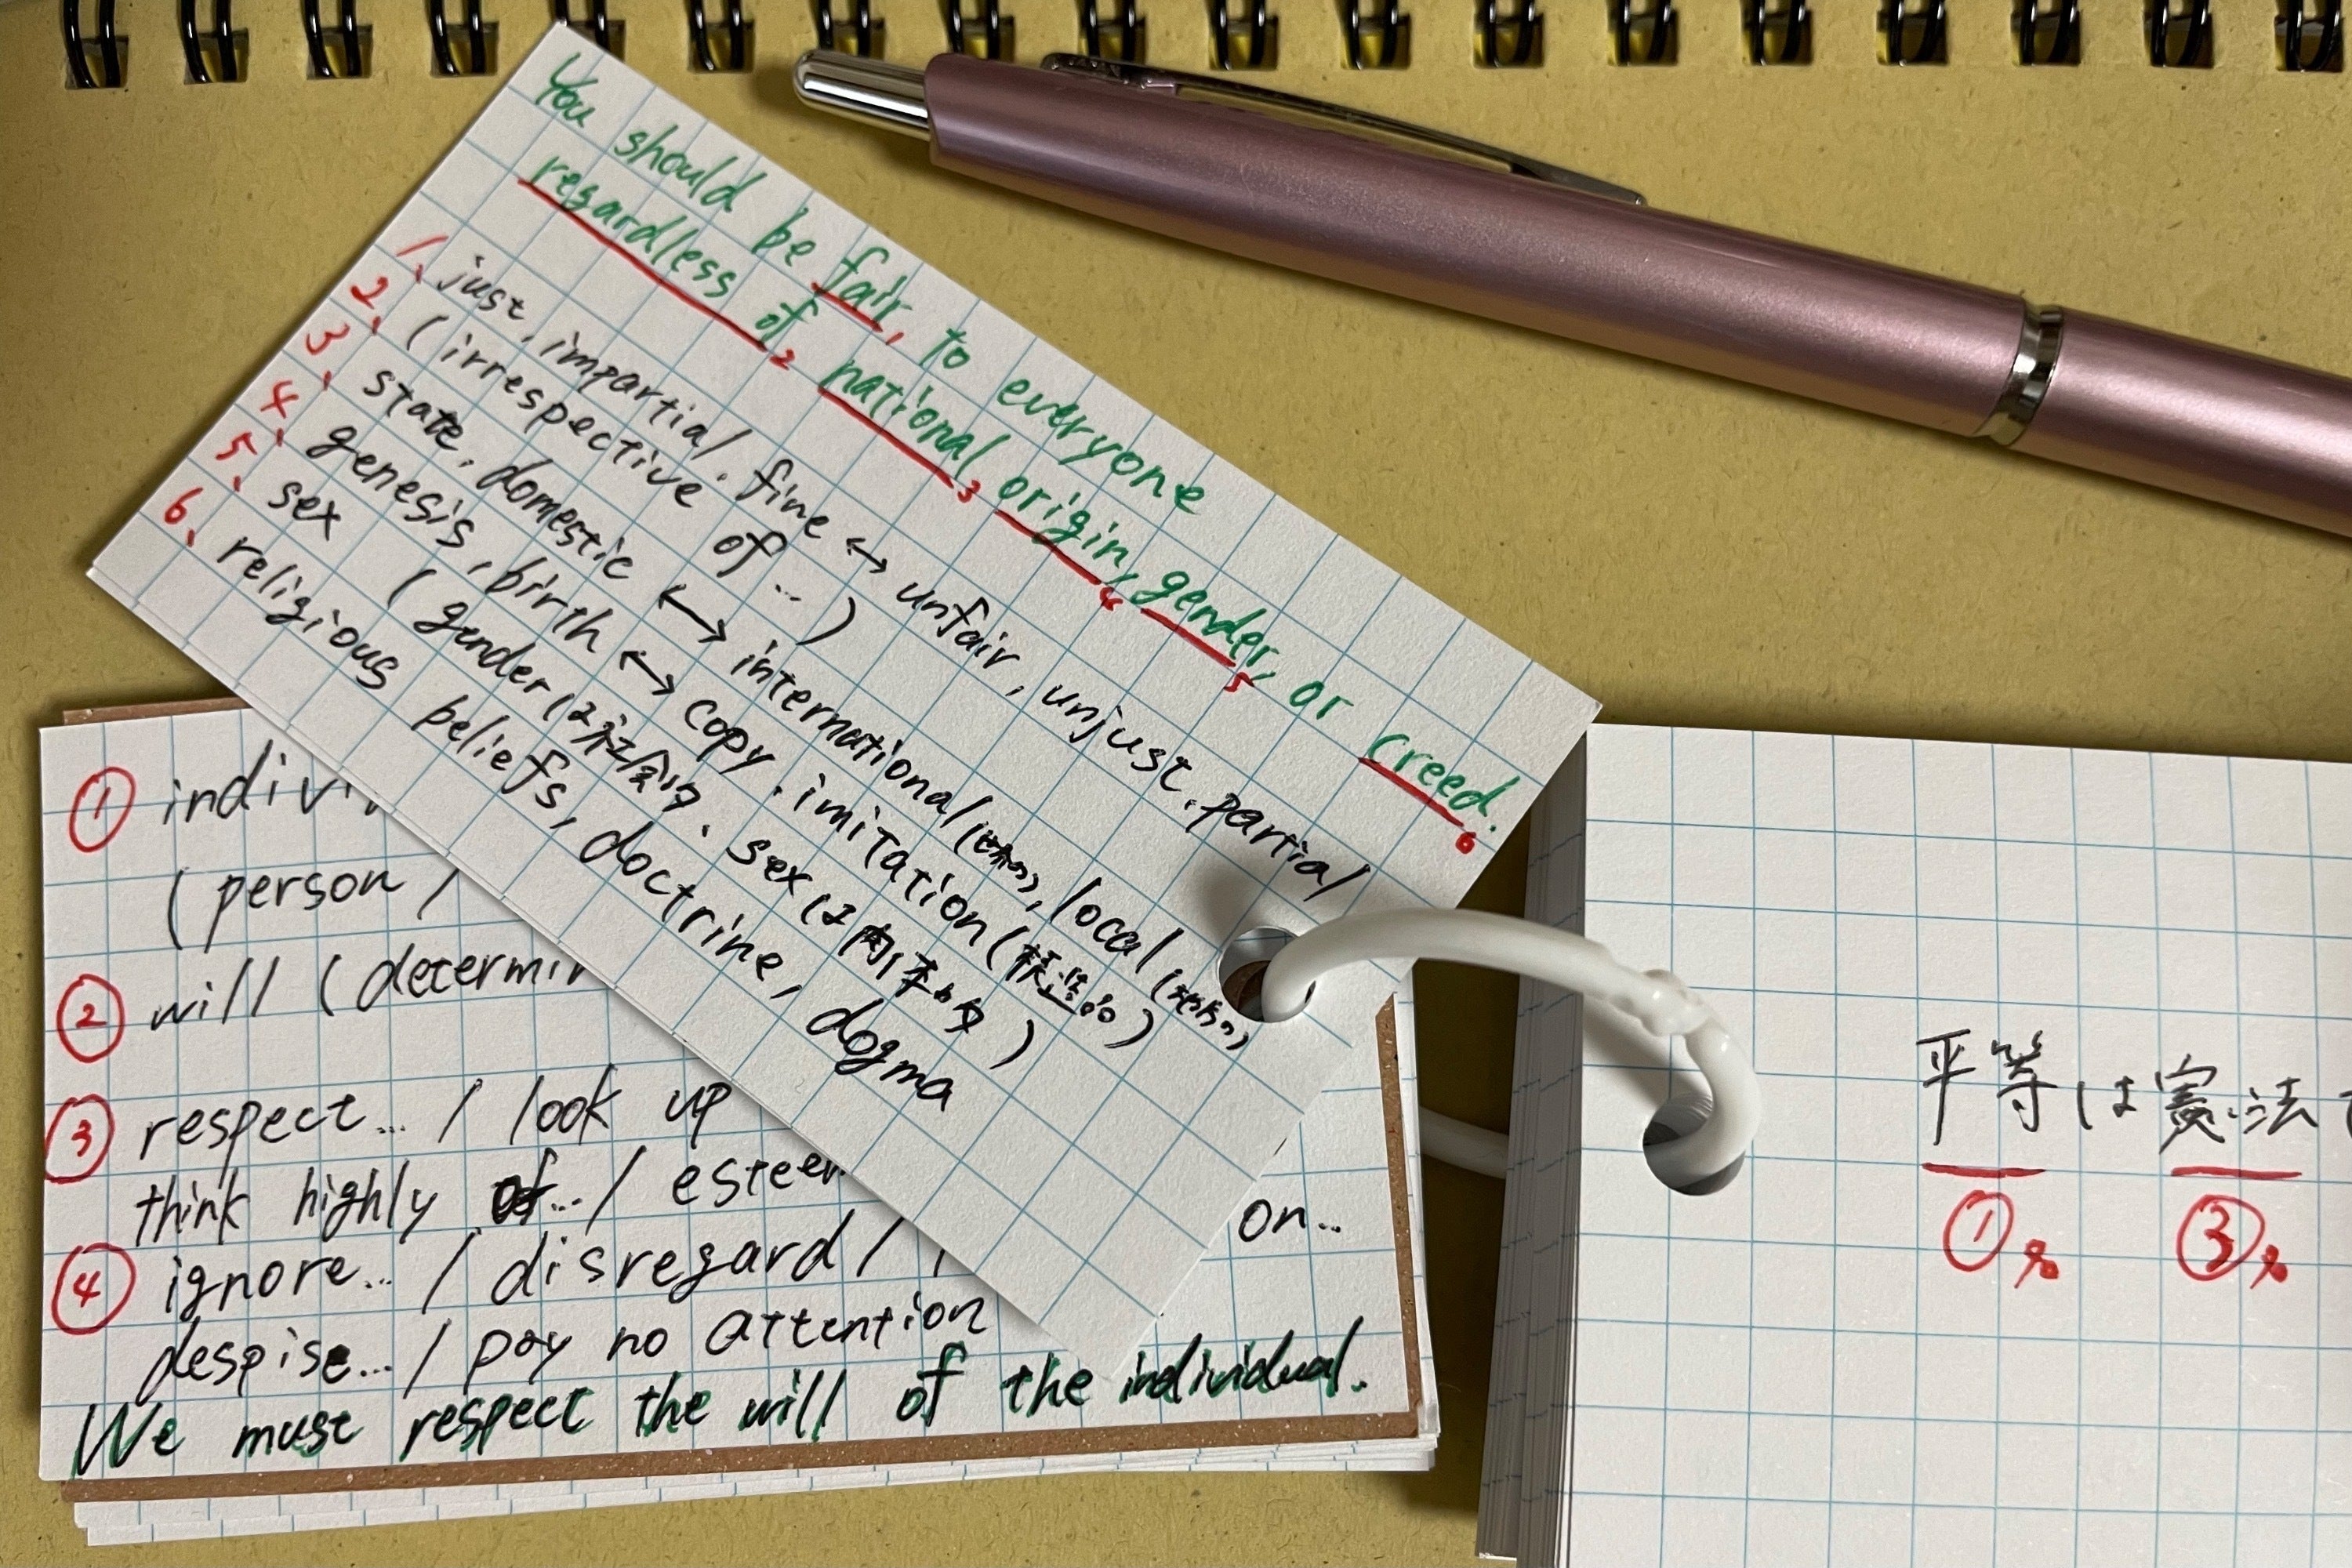 You should be fair1 to everyone
regardless of2 national3 origin,4 gender,5 or creed.6
1. just, impartial, fine ↔ unfair, unjust, partial
2. (irrespective of …)
3. state, domestic ↔ international local
4. genesis, birth ↔ copy, imitation (模造品)
5. sex (gender は社会的、sex は肉体的)
6. religious beliefs, doctrine, dogma
①
(person /
② will (
③ respect… / look up
think highly of… / on…
④ ignore… / disregard /
despise… / pay no attention
We must respect the will of the individual.
平等は憲法
① ③